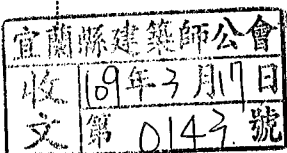 宜蘭縣建築師公會
收文
109年3月17日
第 0143. 號